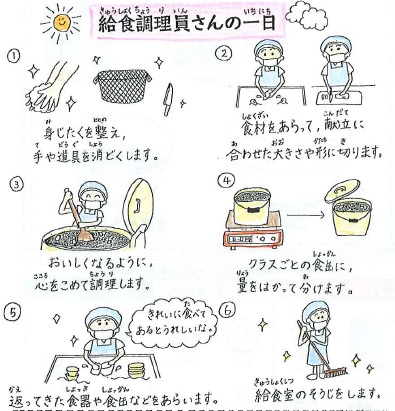 きゅうしょくちょうりいん いちにち
給食調理員さんの一日
①
み ととの
身じたくを整え、
て どうぐ しょう
手や道具を消どくします。
②
しょくざい こんだて
食材をあらって、献立に
あ おお かたち き
合わせた大きさや形に切ります。
③
おいしくなるように、
こころ ちょうり
心をこめて調理します。
④
しょっかん
クラスごとの食缶に、
りょう わ
量をはかって分けます。
⑤
きれいに食べて
あるとうれしいな。
かえ しょっき しょっかん
返ってきた食器や食缶などをあらいます。
⑥
きゅうしょくしつ
給食室のそうじをします。